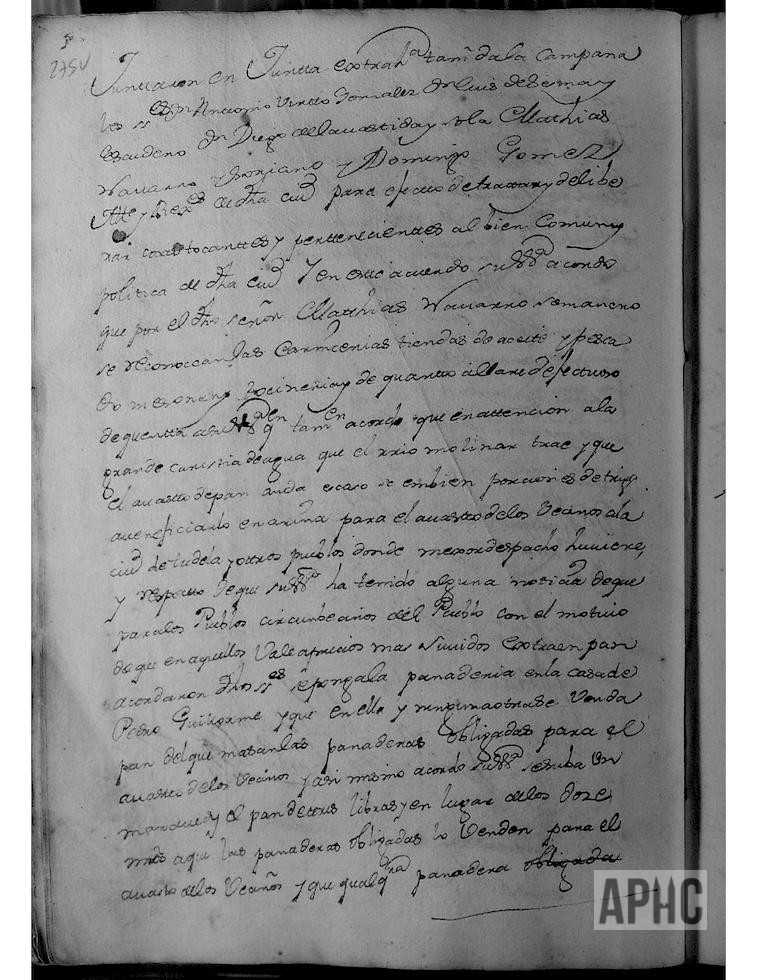 275v
Juntaron en Juntta extrahª tam̃ da la Campana
los ss.es Dn Antonio Virtto Gonzalez Dn Luis de Sema y
Escudero Dn Diego de la y sola Matthias
Navarro y Soriano y Domingo Gomez
Altte y Rexes de dha ciud para efectto de trattar y delibe
rar cosas tocanttes y perttenecientes al bien Comun y
politica de dha ciud Y en este acuerdo su ssª acordo
que por el dho señor Matthias Navarro semanero
se reconozcan las Carnicerias tiendas de aceite y pesca
do mesones y tocineria y de quantto allare defectuoso
de quentta a su ssª en
q tamen acordo que en attencion a la
grande caristia de agua que el rrio molinar trae y que
el avasto de pan anda escaso se embien porciones de trigo
a veneficiarlo en arina para el avasto de los Vecinos a la
ciud de tudela y ottros pueblos donde mexor despacho huviere,
y respecto de que su ssª ha tenido alguna noticia de que
para los Pueblos circunbecinos del Pueblo con el motivo
de que en aquellos Vale a precios mas suvidos extraen pan
acordaron dhos ss.es se ponga la panaderia en la casa de
Pedro Guillorme y que en ella y ninguna otra se Venda
pan del que masan las panaderas obligadas para el
avasto de los Vecinos y asi mismo acordo su ssª se suba Un
maravedi el pan de ttres libras y en lugar de los doze
mrs a que las panaderas obligadas lo Venden para el
avasto de los Vecinos y que qualqra panadera obligada
APHC